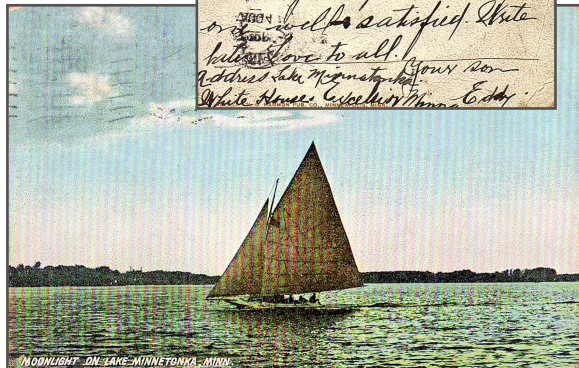 are well & satisfied. Write
love to all.
Address Lake Minnetonka. Your son
White House Excelsior Minn Eddy.
MOONLIGHT ON LAKE MINNETONKA, MINN.